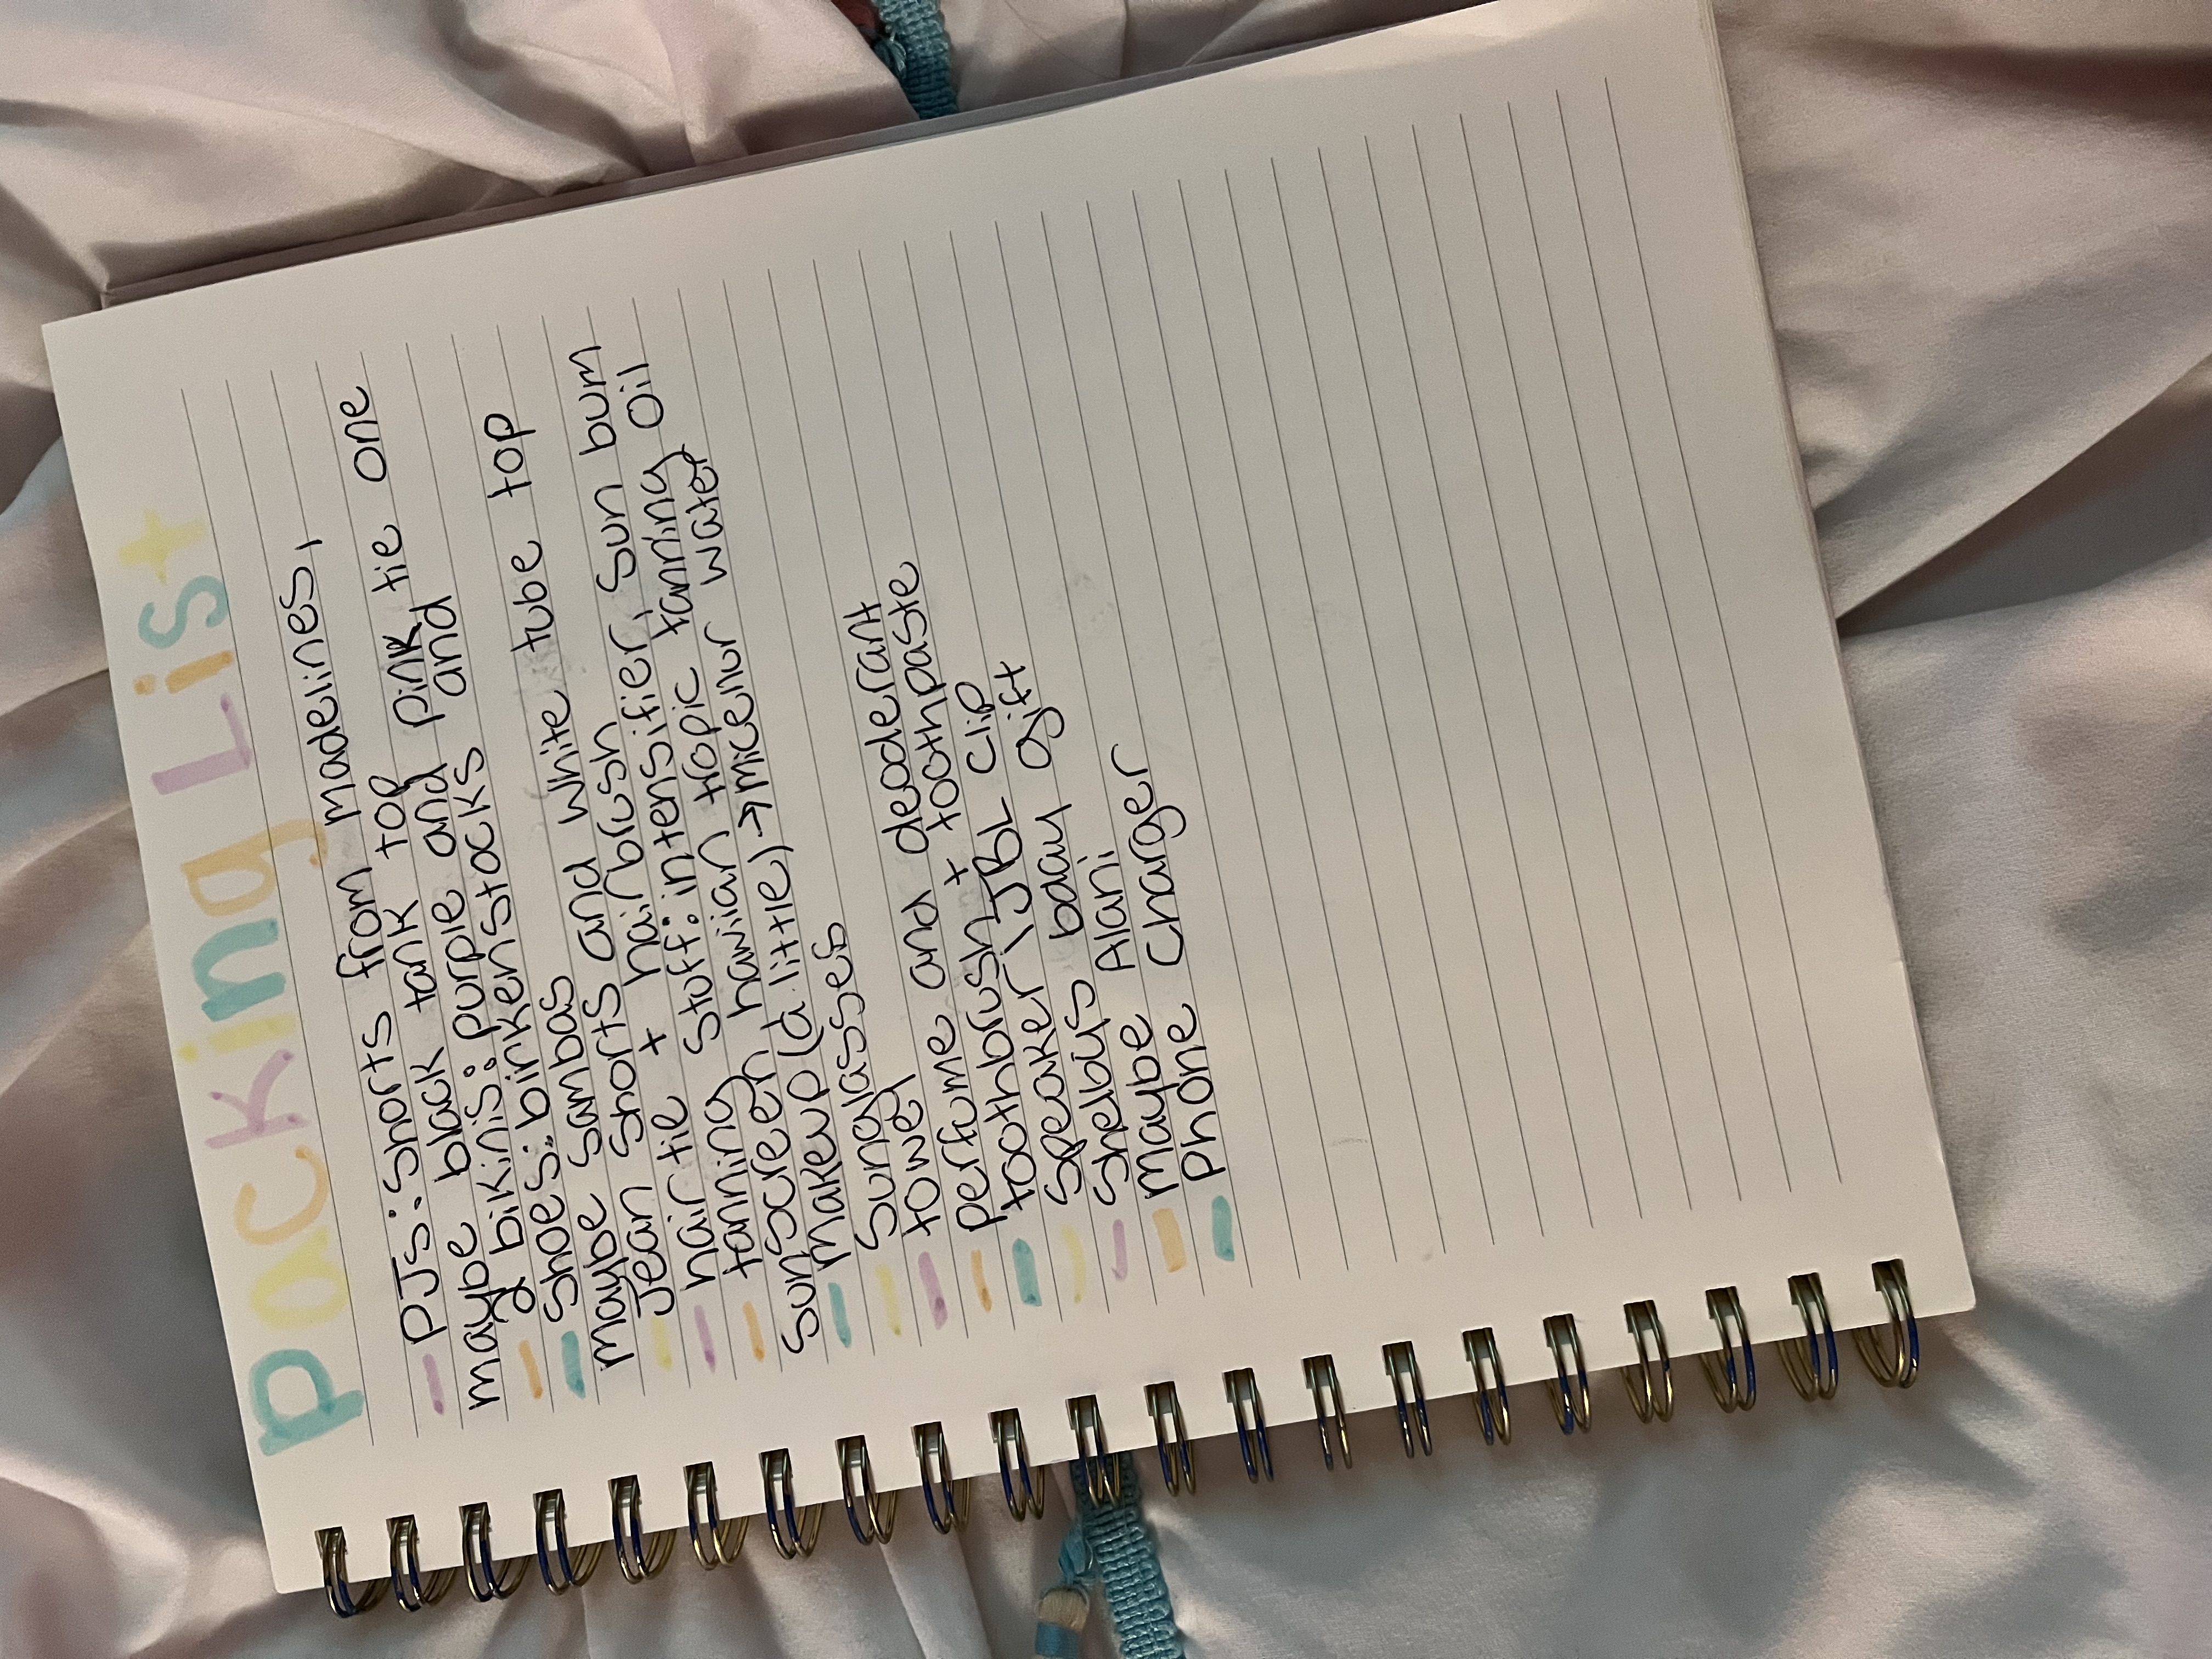 Packing List
- PJs: Shorts from madelines,
maybe black tank top
- bikinis: purple and pink, tie one
- shoes: birkenstocks and
maybe sambas
- Jean shorts and white tube top
- hair tie + hairbrush
- tanning stuff: intensifier, Sun bum
sunscreen hawiian tropic tanning oil
- makeup (a little) → micenur water
- Sunglasses
- towel
- perfume and deoderant
- toothbrush + toothpaste
- speaker \ JBL clip
- Shelbys bday gift
- maybe Alani
- phone charger